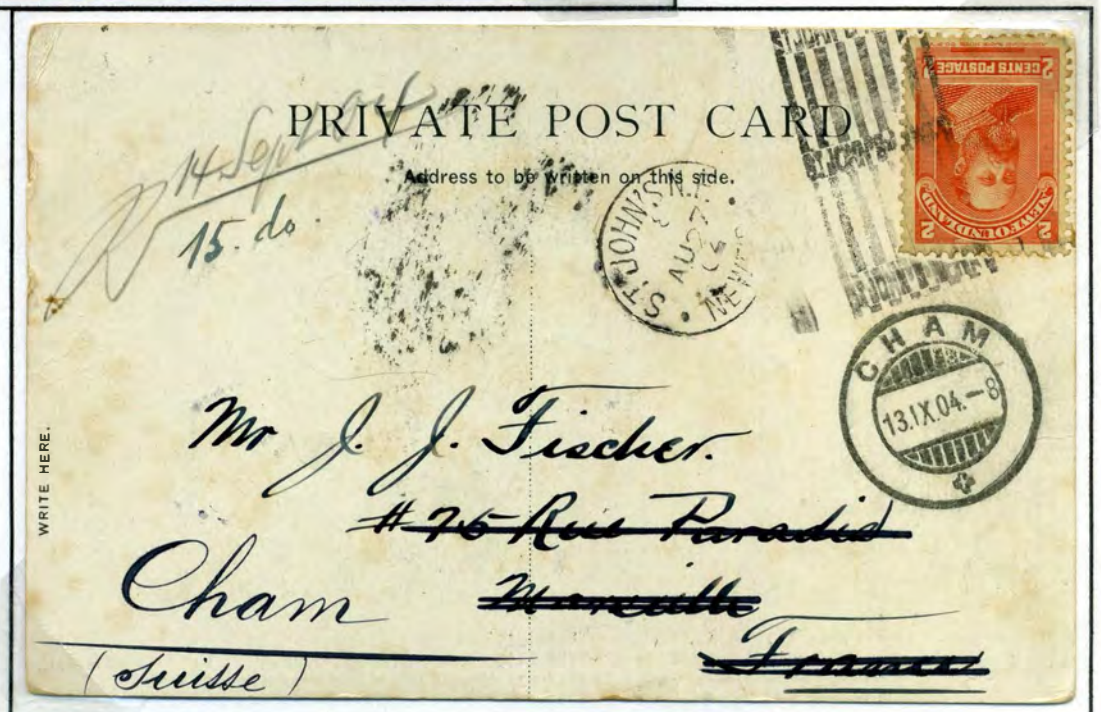 PRIVATE POST CARD
Address to be written on this side.
14 Sept
15. do.
ST. JOHN'S N.F.
AU 27
04
NEWF
ST. JOHN'S
ST. JOHN'S
ST. JOHN'S
2 CENTS POSTAGE 2
NEWFOUNDLAND
2 2
CHAM
13.IX.04.-8
WRITE HERE.
Mr J. J. Fischer.
# 75 Rue Paradis
Marseille
France
Cham
(Suisse)